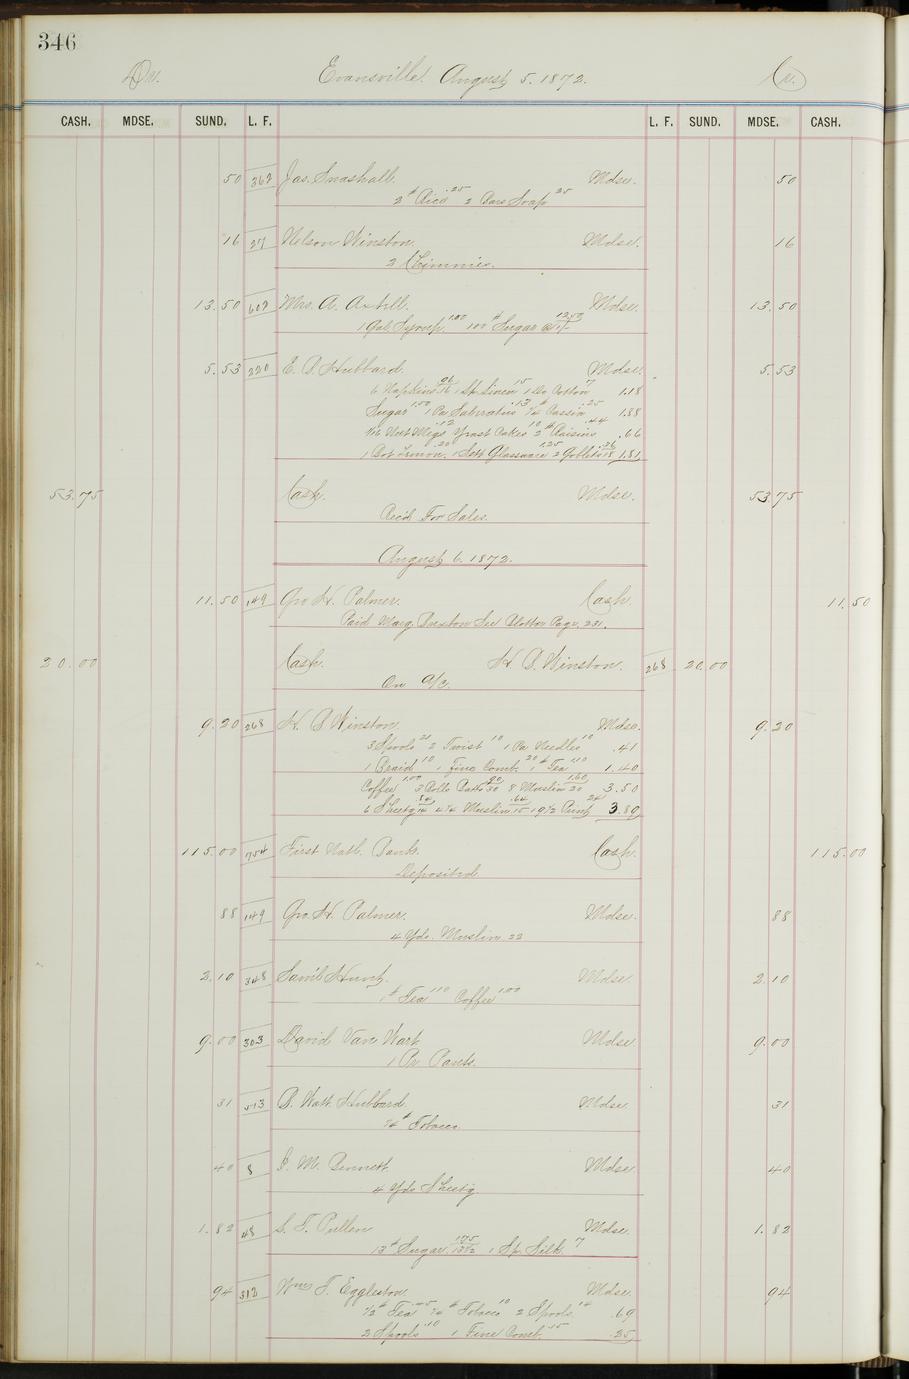 346
Dr. Evansville. August 5. 1872. Cr.
CASH. MDSE. SUND. L. F. L. F. SUND. MDSE. CASH.
50 367 Jas. Snashall. Mdse. 50
2# Rice .25 2 Bars Soap 25
16 27 Nelson Winston. Mdse. 16
2 Chimnies.
13.50 607 Mrs. A. Axtell. Mdse. 13.50
1 Gal. Syrup. 1.00 100# Sugar @ 12.50
5.53 220 E. P. Hubbard. Mdse. 5.53
6 Napkins 96/16 1 Sp. Linen 15 1 Do Cotton 7 1.18
Sugar 1.50 1 Pa Saleratus .13 1/2# Cassia .25 1.88
1/16 Nut Megs .12 Yeast Cakes 10 2# Raisins .44 .66
1 Bot Lemon. .20 1 Sett Glassware 1.25 2 Goblets .36/18 1.81
53.75 Cash. Mdse. 53.75
Rec'd For Sales.
August 6. 1872.
11.50 149 Geo. H. Palmer. Cash. 11.50
Paid Marg. See Blotter Page. 231.
20.00 Cash. H. B. Winston. 268 20.00
On a/c.
9.20 268 H. B. Winston. Mdse. 9.20
3 Spools 21 2 Twist 10 1 Pa Needles 10 .41
1 Braid 10 1 Fine Comb. 20 1# Tea 1.10 1.40
Coffee 1.00 3 Rolls Batts 90/30 8 Muslin 1.60/20 3.50
6 Sheetg 84/14 4 1/4 Muslin .64/15 19 1/2 Print 3.89
115.00 754 First Natl. Bank. Cash. 115.00
Deposited
88 149 Geo. H. Palmer. Mdse. 88
4 Yds. Muslin 22
2.10 348 Saml Hurd. Mdse. 2.10
1# Tea 1.10 Coffee 1.00
9.00 303 David Van Wart Mdse. 9.00
1 Pr Pants.
31 513 B. Watt. Hubbard. Mdse. 31
1/4# Tobacco
40 8 J. M. Bennett. Mdse. 40
4 Yds Sheetg
1.82 48 S. T. Pullen Mdse. 1.82
13# Sugar. 1.75/13 1/2 1 Sp. Silk. 7
94 312 Wm. T. Eggleston. Mdse. 94
1/2# Tea 45 1/4# Tobacco 10 2 Spools. 14 .69
2 Spools .10 1 Fine Comb. .15 .25